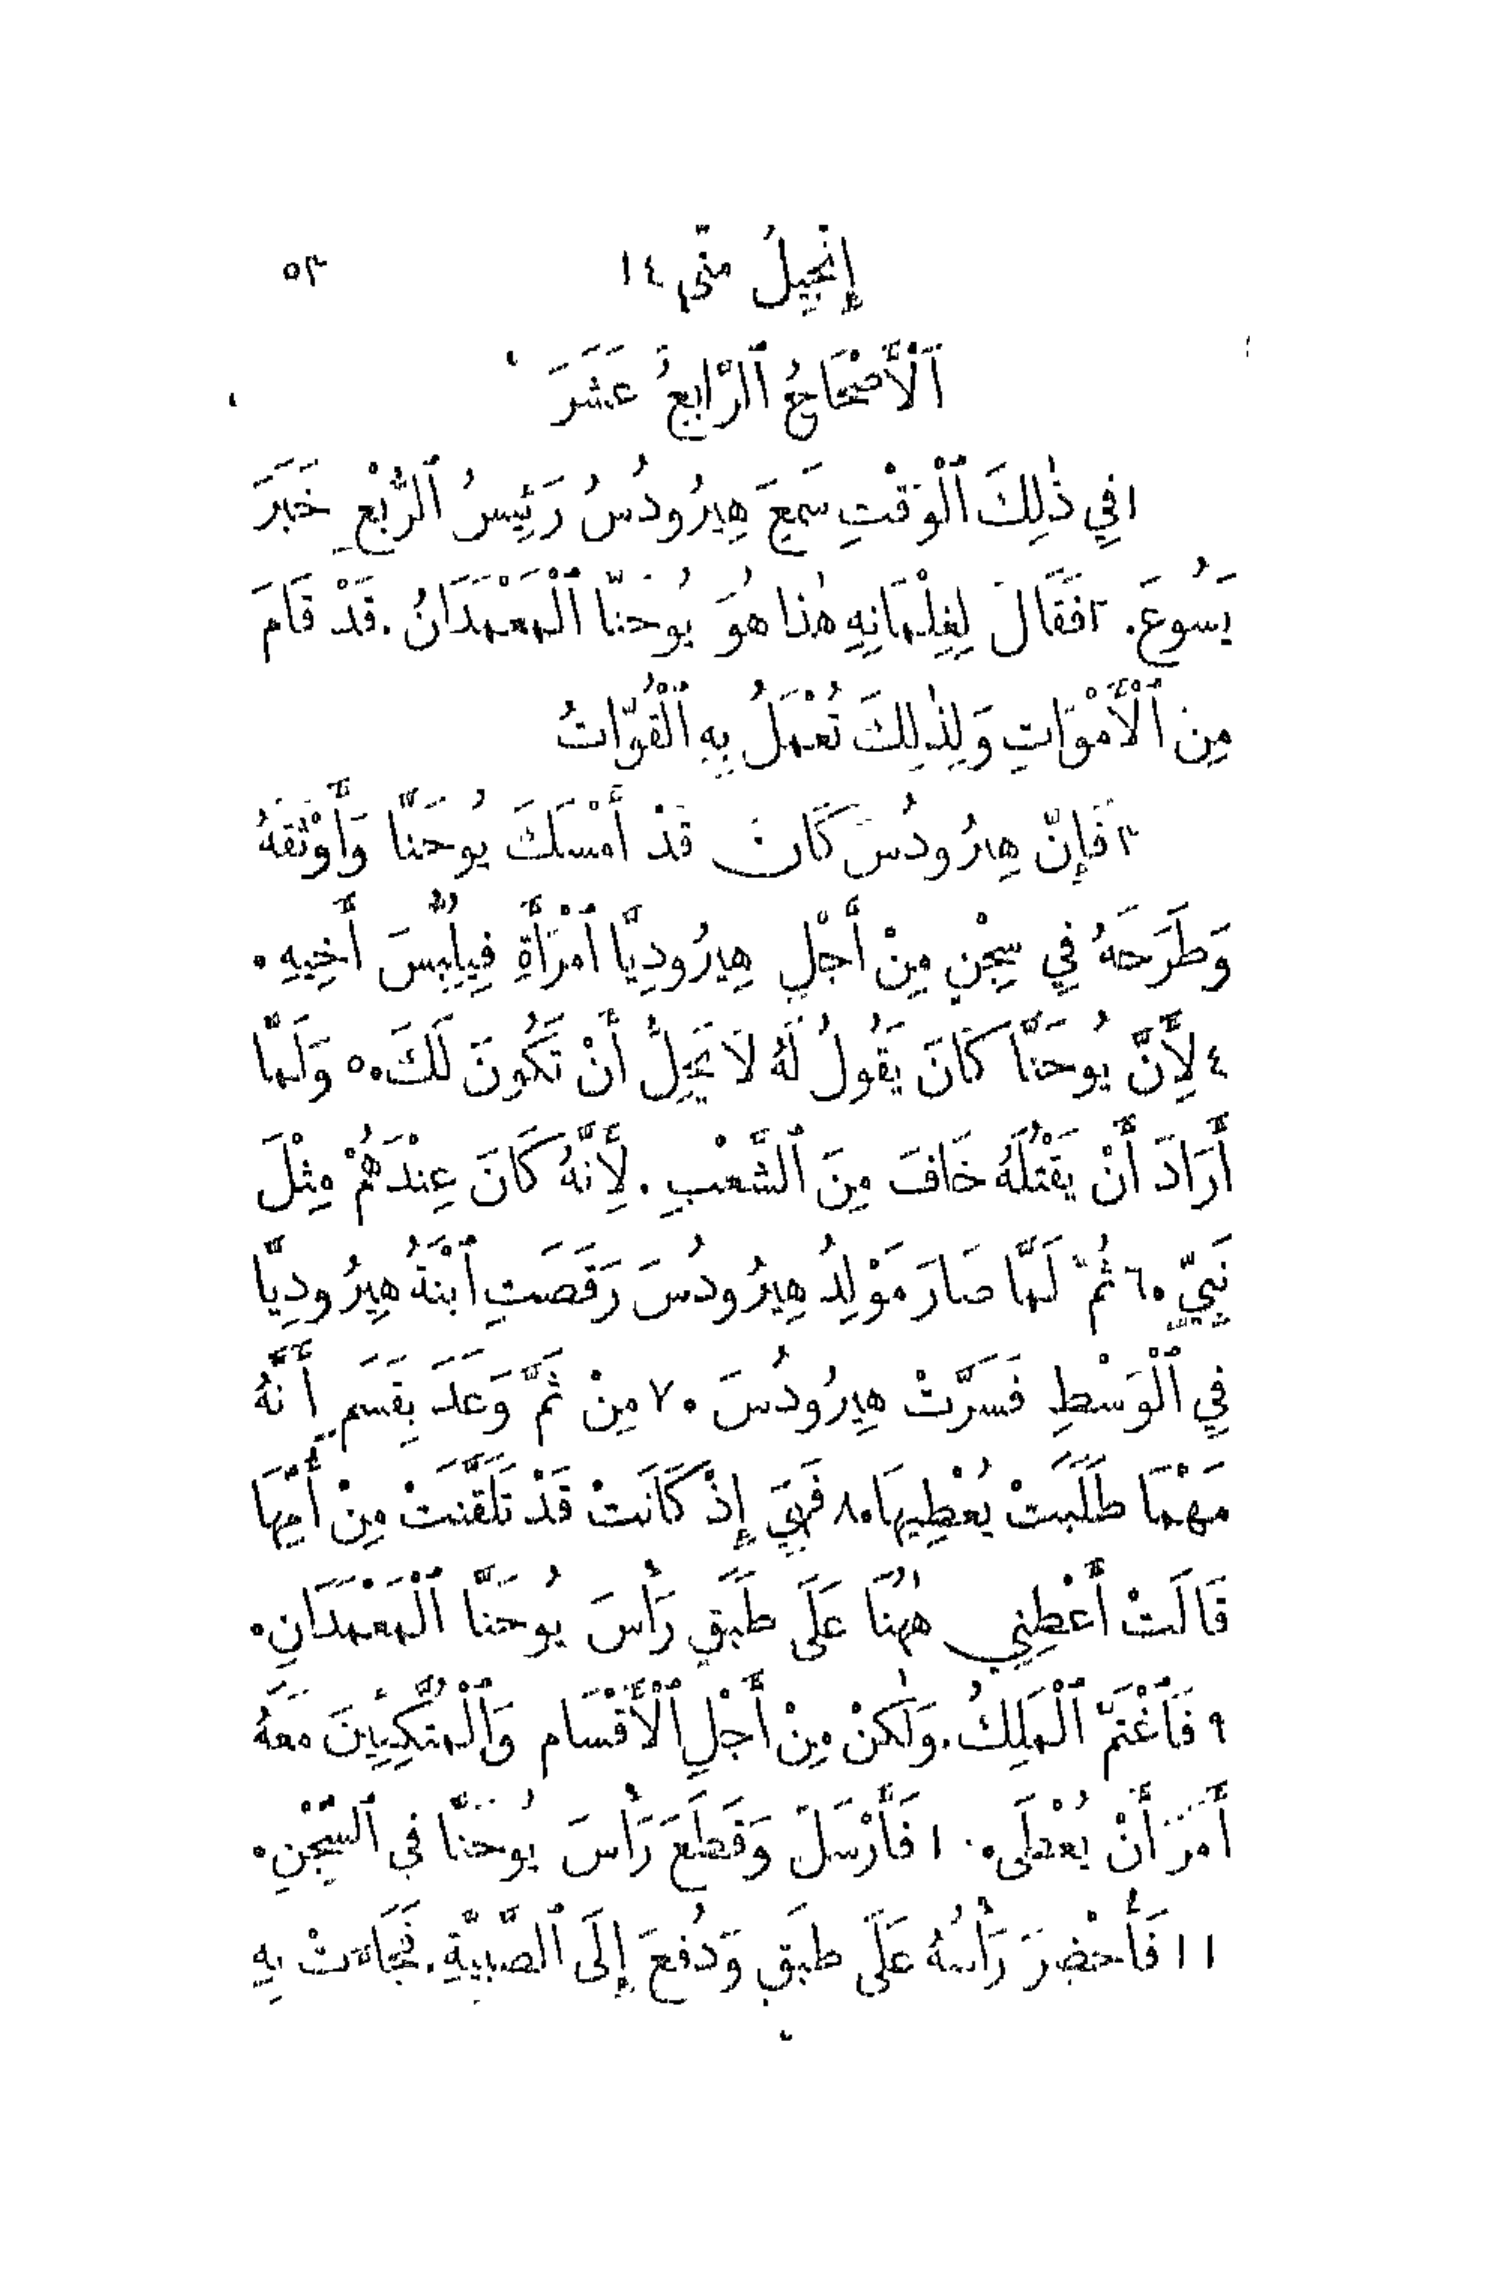 إِنْجِيلُ مَتَّى ١٤ ٥٣
اَلْأَصْحَاحُ ٱلرَّابِعُ عَشَرَ
١ فِي ذٰلِكَ ٱلْوَقْتِ سَمِعَ هِيرُودُسُ رَئِيسُ ٱلرُّبْعِ خَبَرَ
يَسُوعَ. ٢ فَقَالَ لِغِلْمَانِهِ هٰذَا هُوَ يُوحَنَّا ٱلْمَعْمَدَانُ. قَدْ قَامَ
مِنَ ٱلْأَمْوَاتِ وَلِذٰلِكَ تُعْمَلُ بِهِ ٱلْقُوَّاتُ
٣ فَإِنَّ هِيرُودُسَ كَانَ قَدْ أَمْسَكَ يُوحَنَّا وَأَوْثَقَهُ
وَطَرَحَهُ فِي سِجْنٍ مِنْ أَجْلِ هِيرُودِيَّا ٱمْرَأَةِ فِيلِبُّسَ أَخِيهِ.
٤ لِأَنَّ يُوحَنَّا كَانَ يَقُولُ لَهُ لَا يَحِلُّ أَنْ تَكُونَ لَكَ. ٥ وَلَمَّا
أَرَادَ أَنْ يَقْتُلَهُ خَافَ مِنَ ٱلشَّعْبِ. لِأَنَّهُ كَانَ عِنْدَهُمْ مِثْلَ
نَبِيٍّ. ٦ ثُمَّ لَمَّا صَارَ مَوْلِدُ هِيرُودُسَ رَقَصَتِ ٱبْنَةُ هِيرُودِيَّا
فِي ٱلْوَسْطِ فَسَرَّتْ هِيرُودُسَ. ٧ مِنْ ثَمَّ وَعَدَ بِقَسَمٍ أَنَّهُ
مَهْمَا طَلَبَتْ يُعْطِيهَا. ٨ فَهِيَ إِذْ كَانَتْ قَدْ تَلَقَّنَتْ مِنْ أُمِّهَا
قَالَتْ أَعْطِنِي هٰهُنَا عَلَى طَبَقٍ رَأْسَ يُوحَنَّا ٱلْمَعْمَدَانِ.
٩ فَٱغْتَمَّ ٱلْمَلِكُ. وَلٰكِنْ مِنْ أَجْلِ ٱلْأَقْسَامِ وَٱلْمُتَّكِئِينَ مَعَهُ
أَمَرَ أَنْ يُعْطَى. ١٠ فَأَرْسَلَ وَقَطَعَ رَأْسَ يُوحَنَّا فِي ٱلسِّجْنِ.
١١ فَأُحْضِرَ رَأْسُهُ عَلَى طَبَقٍ وَدُفِعَ إِلَى ٱلصَّبِيَّةِ. فَجَاءَتْ بِهِ